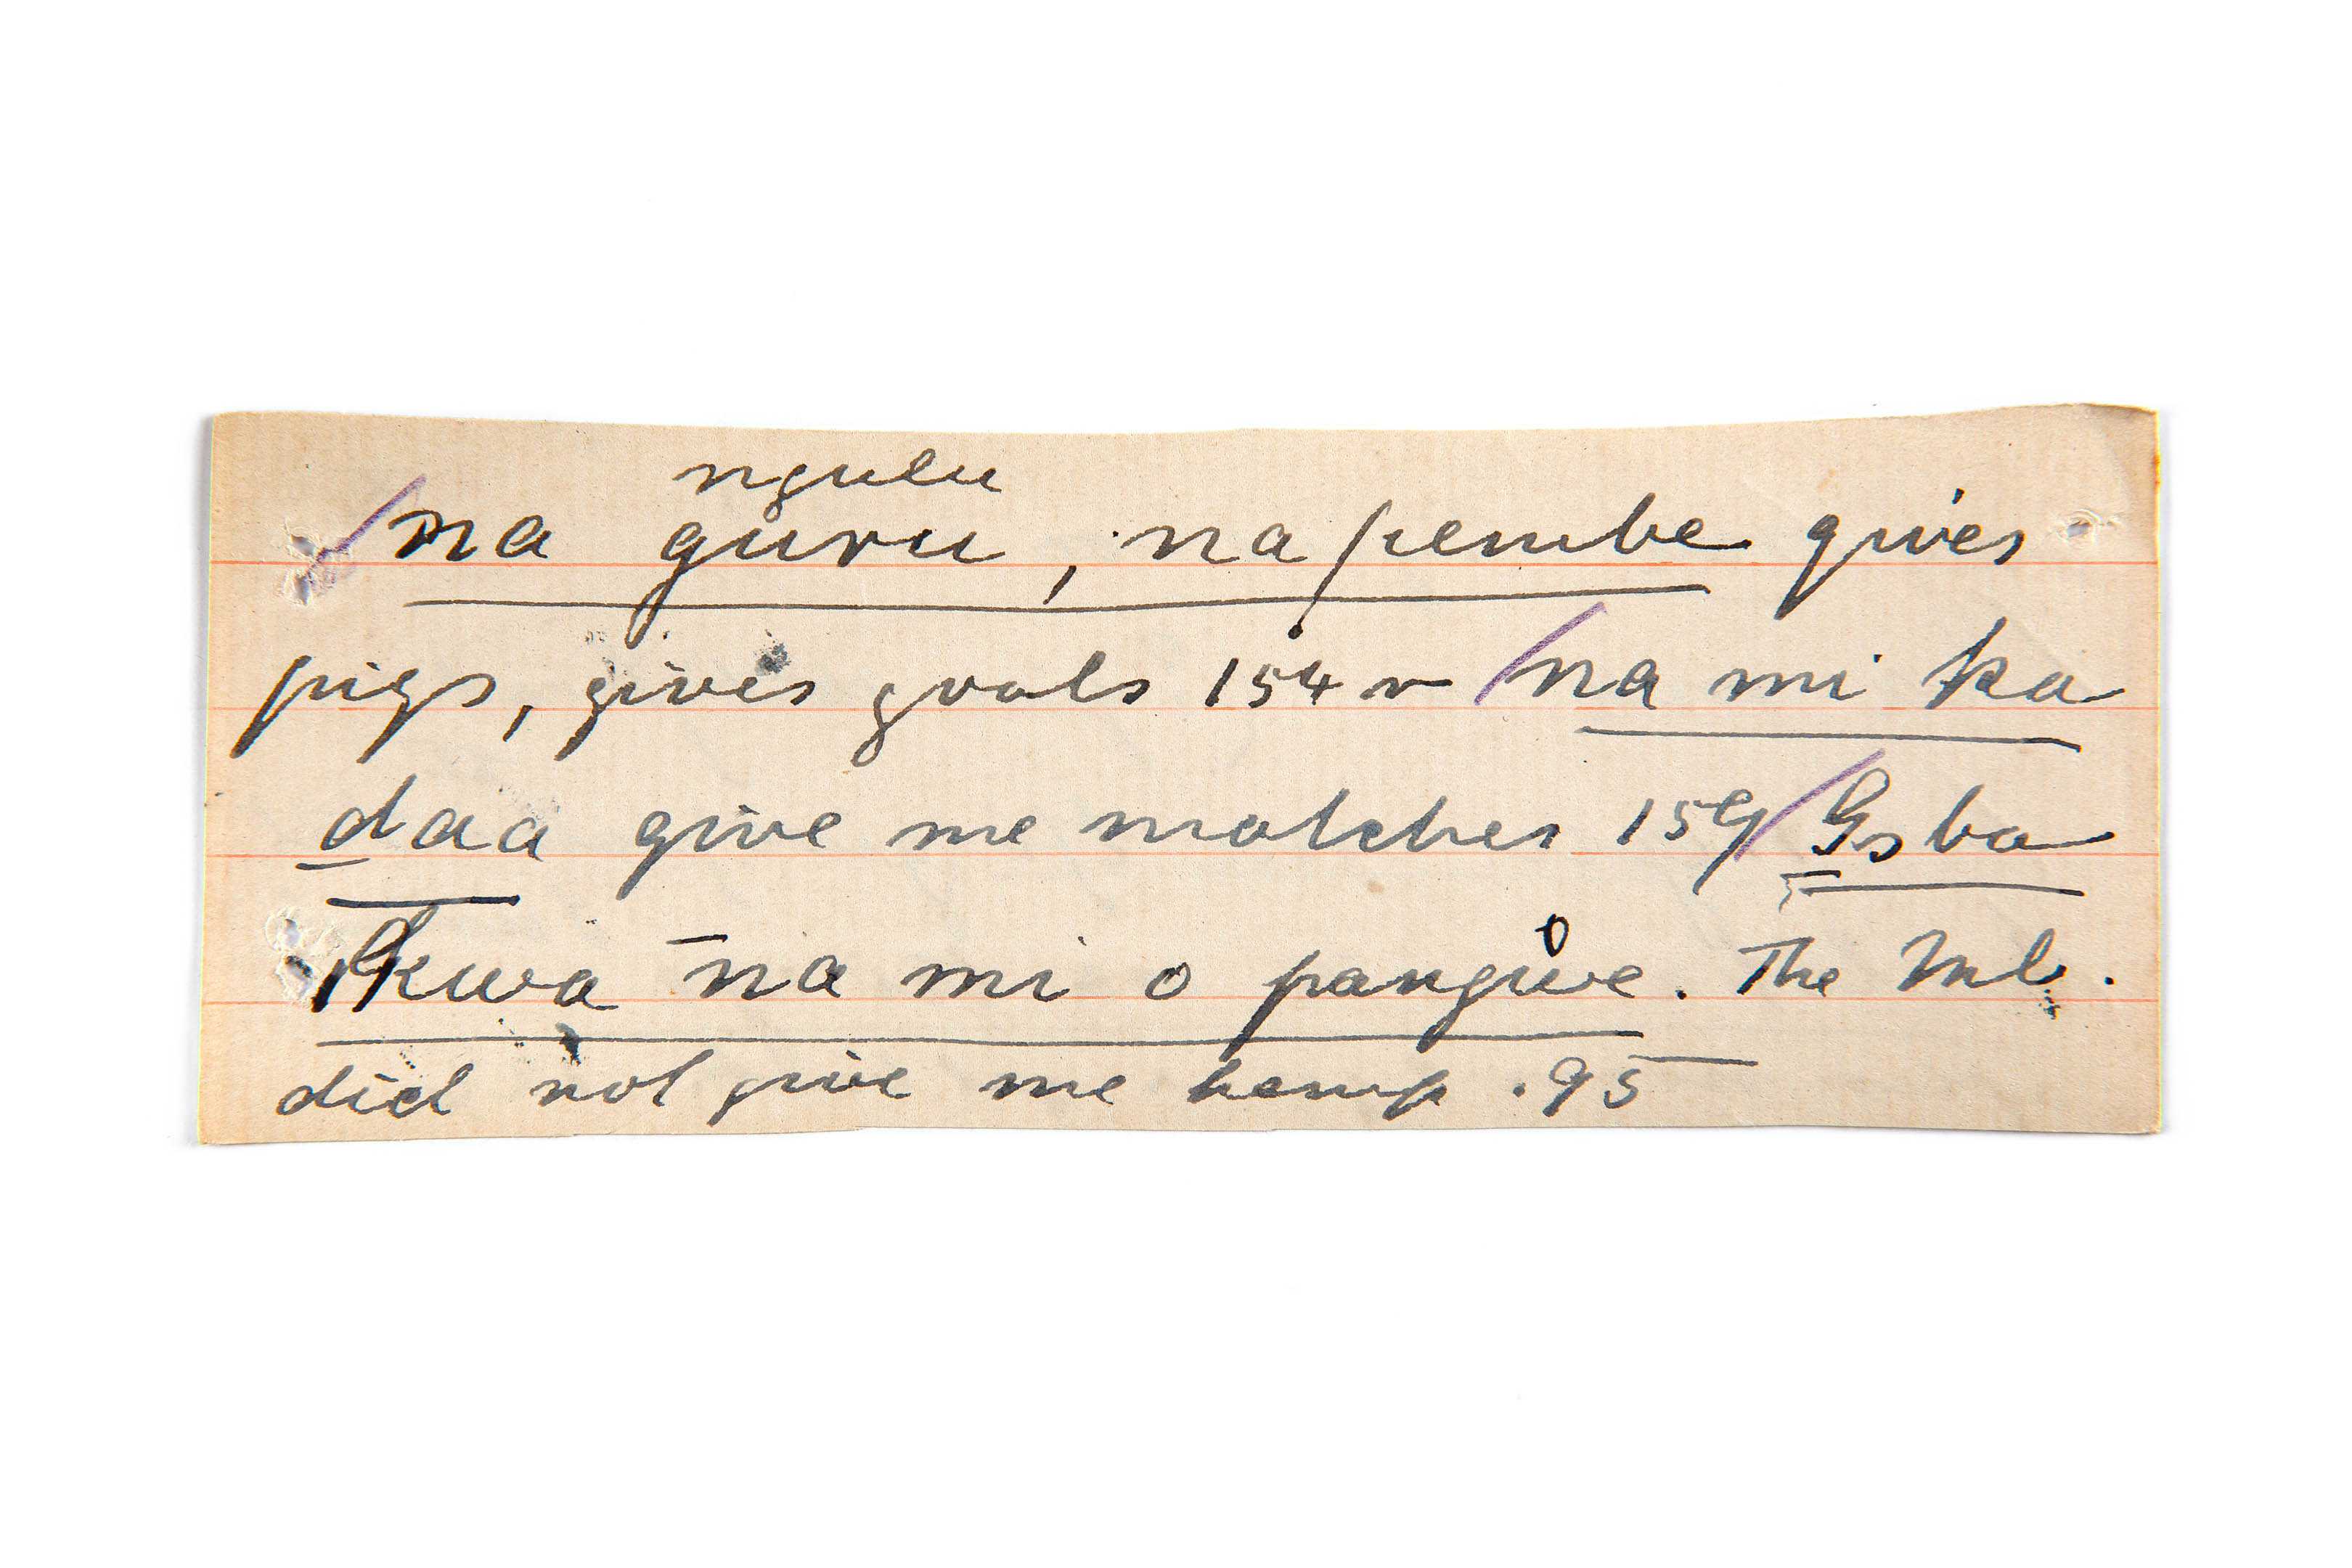 ngulu
na guru, na pembe gives
pigs, gives goats 154 v na mi ka
daa give me matches 159 Isba
kwa na mi o pangwe. The Mb.
did not give me hemp. 95